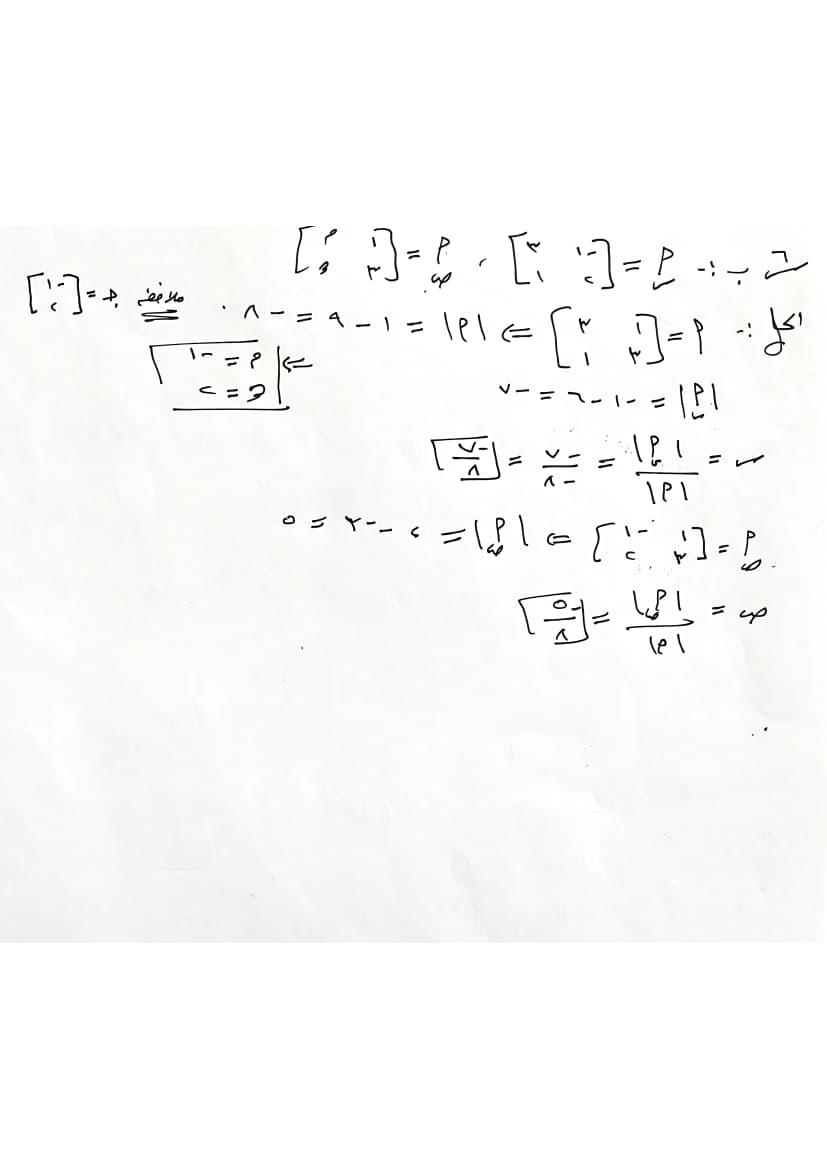 س ب :- أس = [-١ ٣ ; ٢ ١] ، أص = [١ م ; ٣ و]
الحل :- أ = [١ ٣ ; ٣ ١] ⇐ |أ| = ١ - ٩ = -٨ . ملاحظة جـ = [-١ ; ٢]
⇐ م = -١
و = ٢
|أس| = -١ - ٦ = -٧
س = |أس| / |أ| = -٧ / -٨ = -٧ / ٨
أص = [١ -١ ; ٣ ٢] ⇐ |أص| = ٢ - -٣ = ٥
ص = |أص| / |أ| = -٥ / ٨